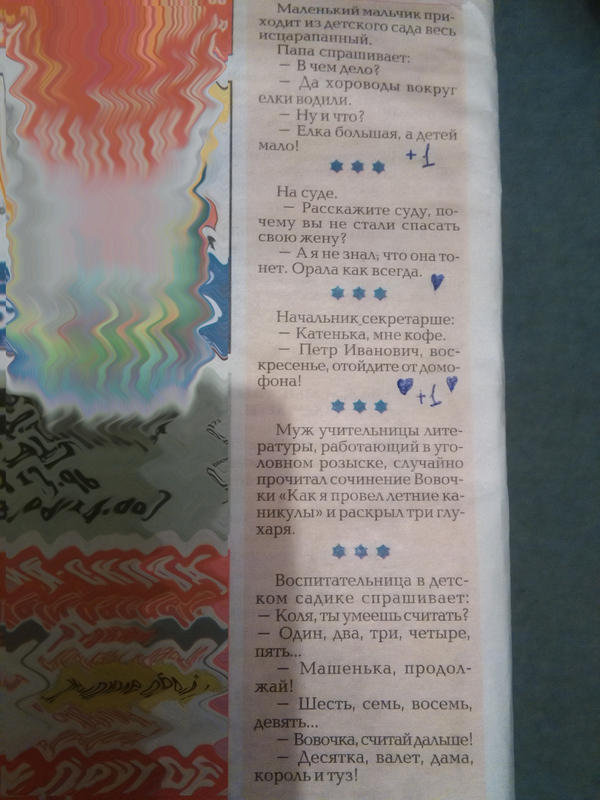 Маленький мальчик при-
ходит из детского сада весь
исцарапанный.
Папа спрашивает:
— В чем дело?
— Да хороводы вокруг
елки водили.
— Ну и что?
— Елка большая, а детей
мало!
+1
На суде.
— Расскажите суду, по-
чему вы не стали спасать
свою жену?
— А я не знал, что она то-
нет. Орала как всегда.
Начальник секретарше:
— Катенька, мне кофе.
— Петр Иванович, вос-
кресенье, отойдите от домо-
фона!
+1
Муж учительницы лите-
ратуры, работающий в уго-
ловном розыске, случайно
прочитал сочинение Вовоч-
ки «Как я провел летние ка-
никулы» и раскрыл три глу-
харя.
Воспитательница в детс-
ком садике спрашивает:
— Коля, ты умеешь считать?
— Один, два, три, четыре,
пять...
— Машенька, продол-
жай!
— Шесть, семь, восемь,
девять...
— Вовочка, считай дальше!
— Десятка, валет, дама,
король и туз!